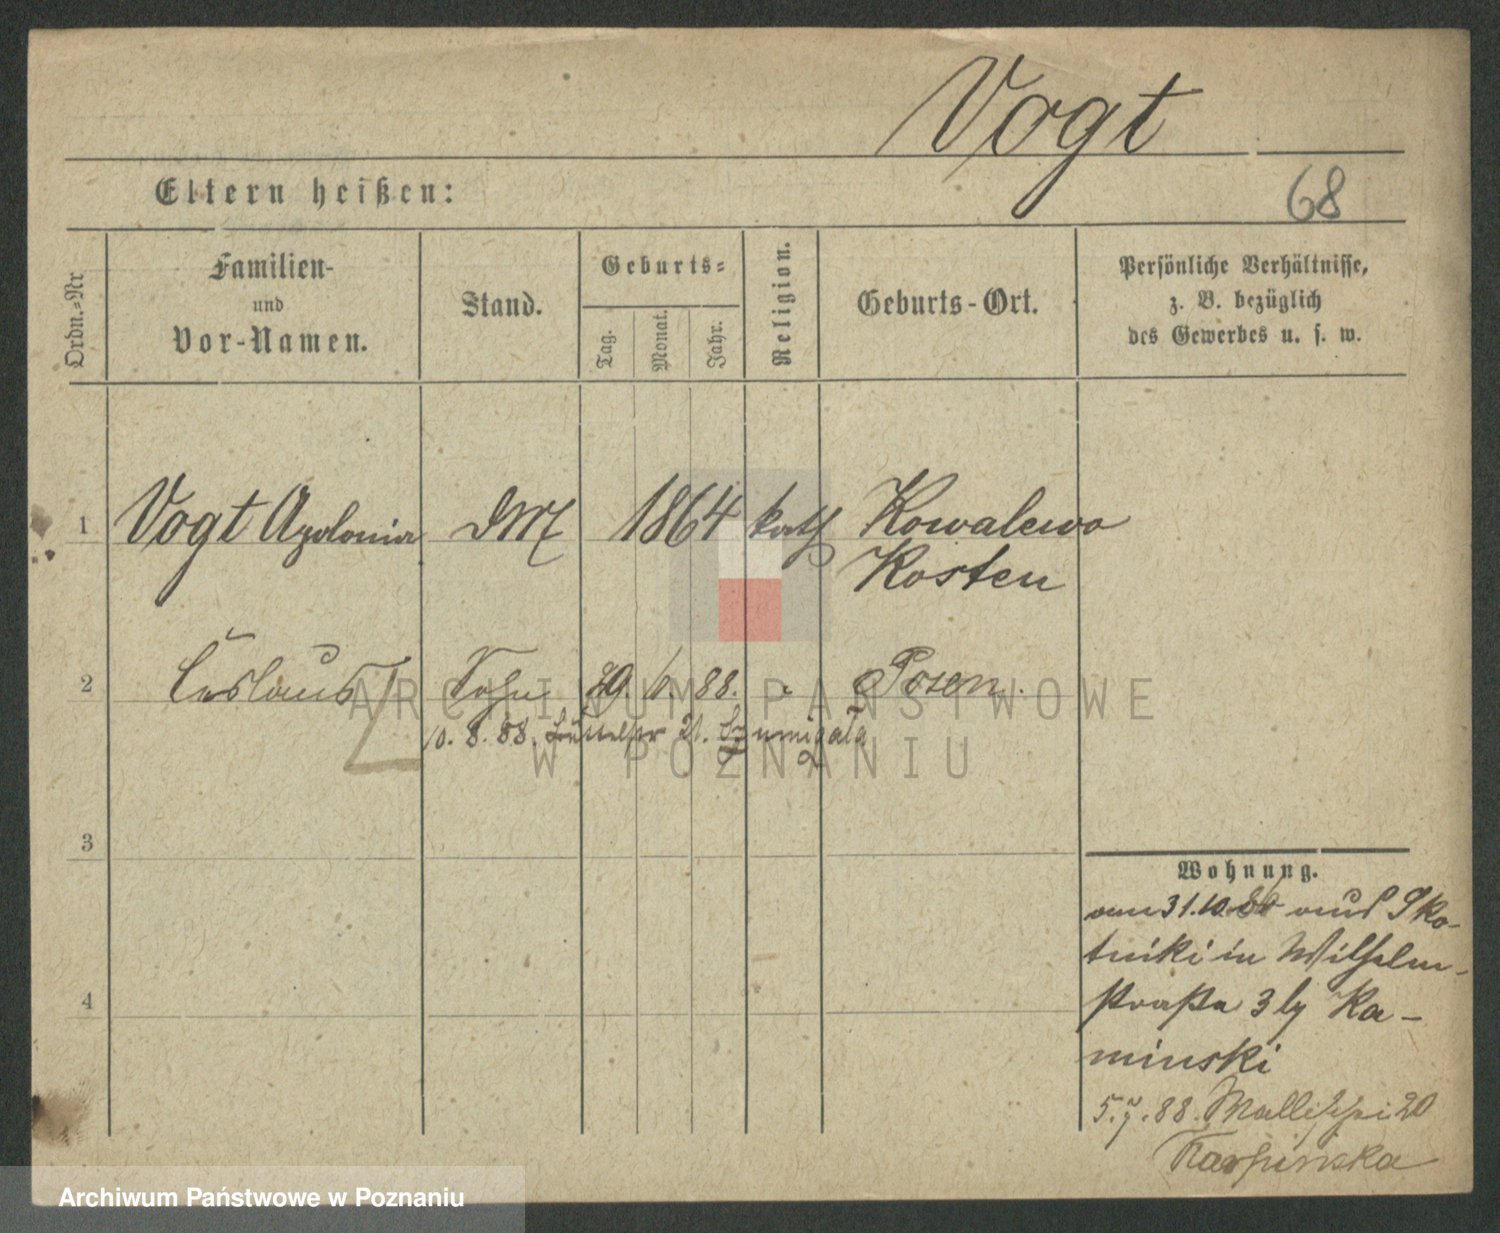 Vogt
68
Eltern heißen:
Ordn.-Nr
Familien-
und
Vor-Namen.
Stand.
Geburts-
Tag.
Monat.
Jahr.
Religion.
Geburts-Ort.
Persönliche Verhältnisse,
z. B. bezüglich
des Gewerbes u. s. w.
1 Vogt Apolonia DM 1864 kath Kowalewo
Kosten
2 Ceslaus Sohn 6. 88. Posen.
10. 8. 88.
3
4
Wohnung.
vom 31.10.86 aus Sko-
tniki in Wilhelm-
straße 3 by Ka-
minski
5.7.88. Wallischei 20
Karpinska
ARCHIWUM PAŃSTWOWE
W POZNANIU
Archiwum Państwowe w Poznaniu